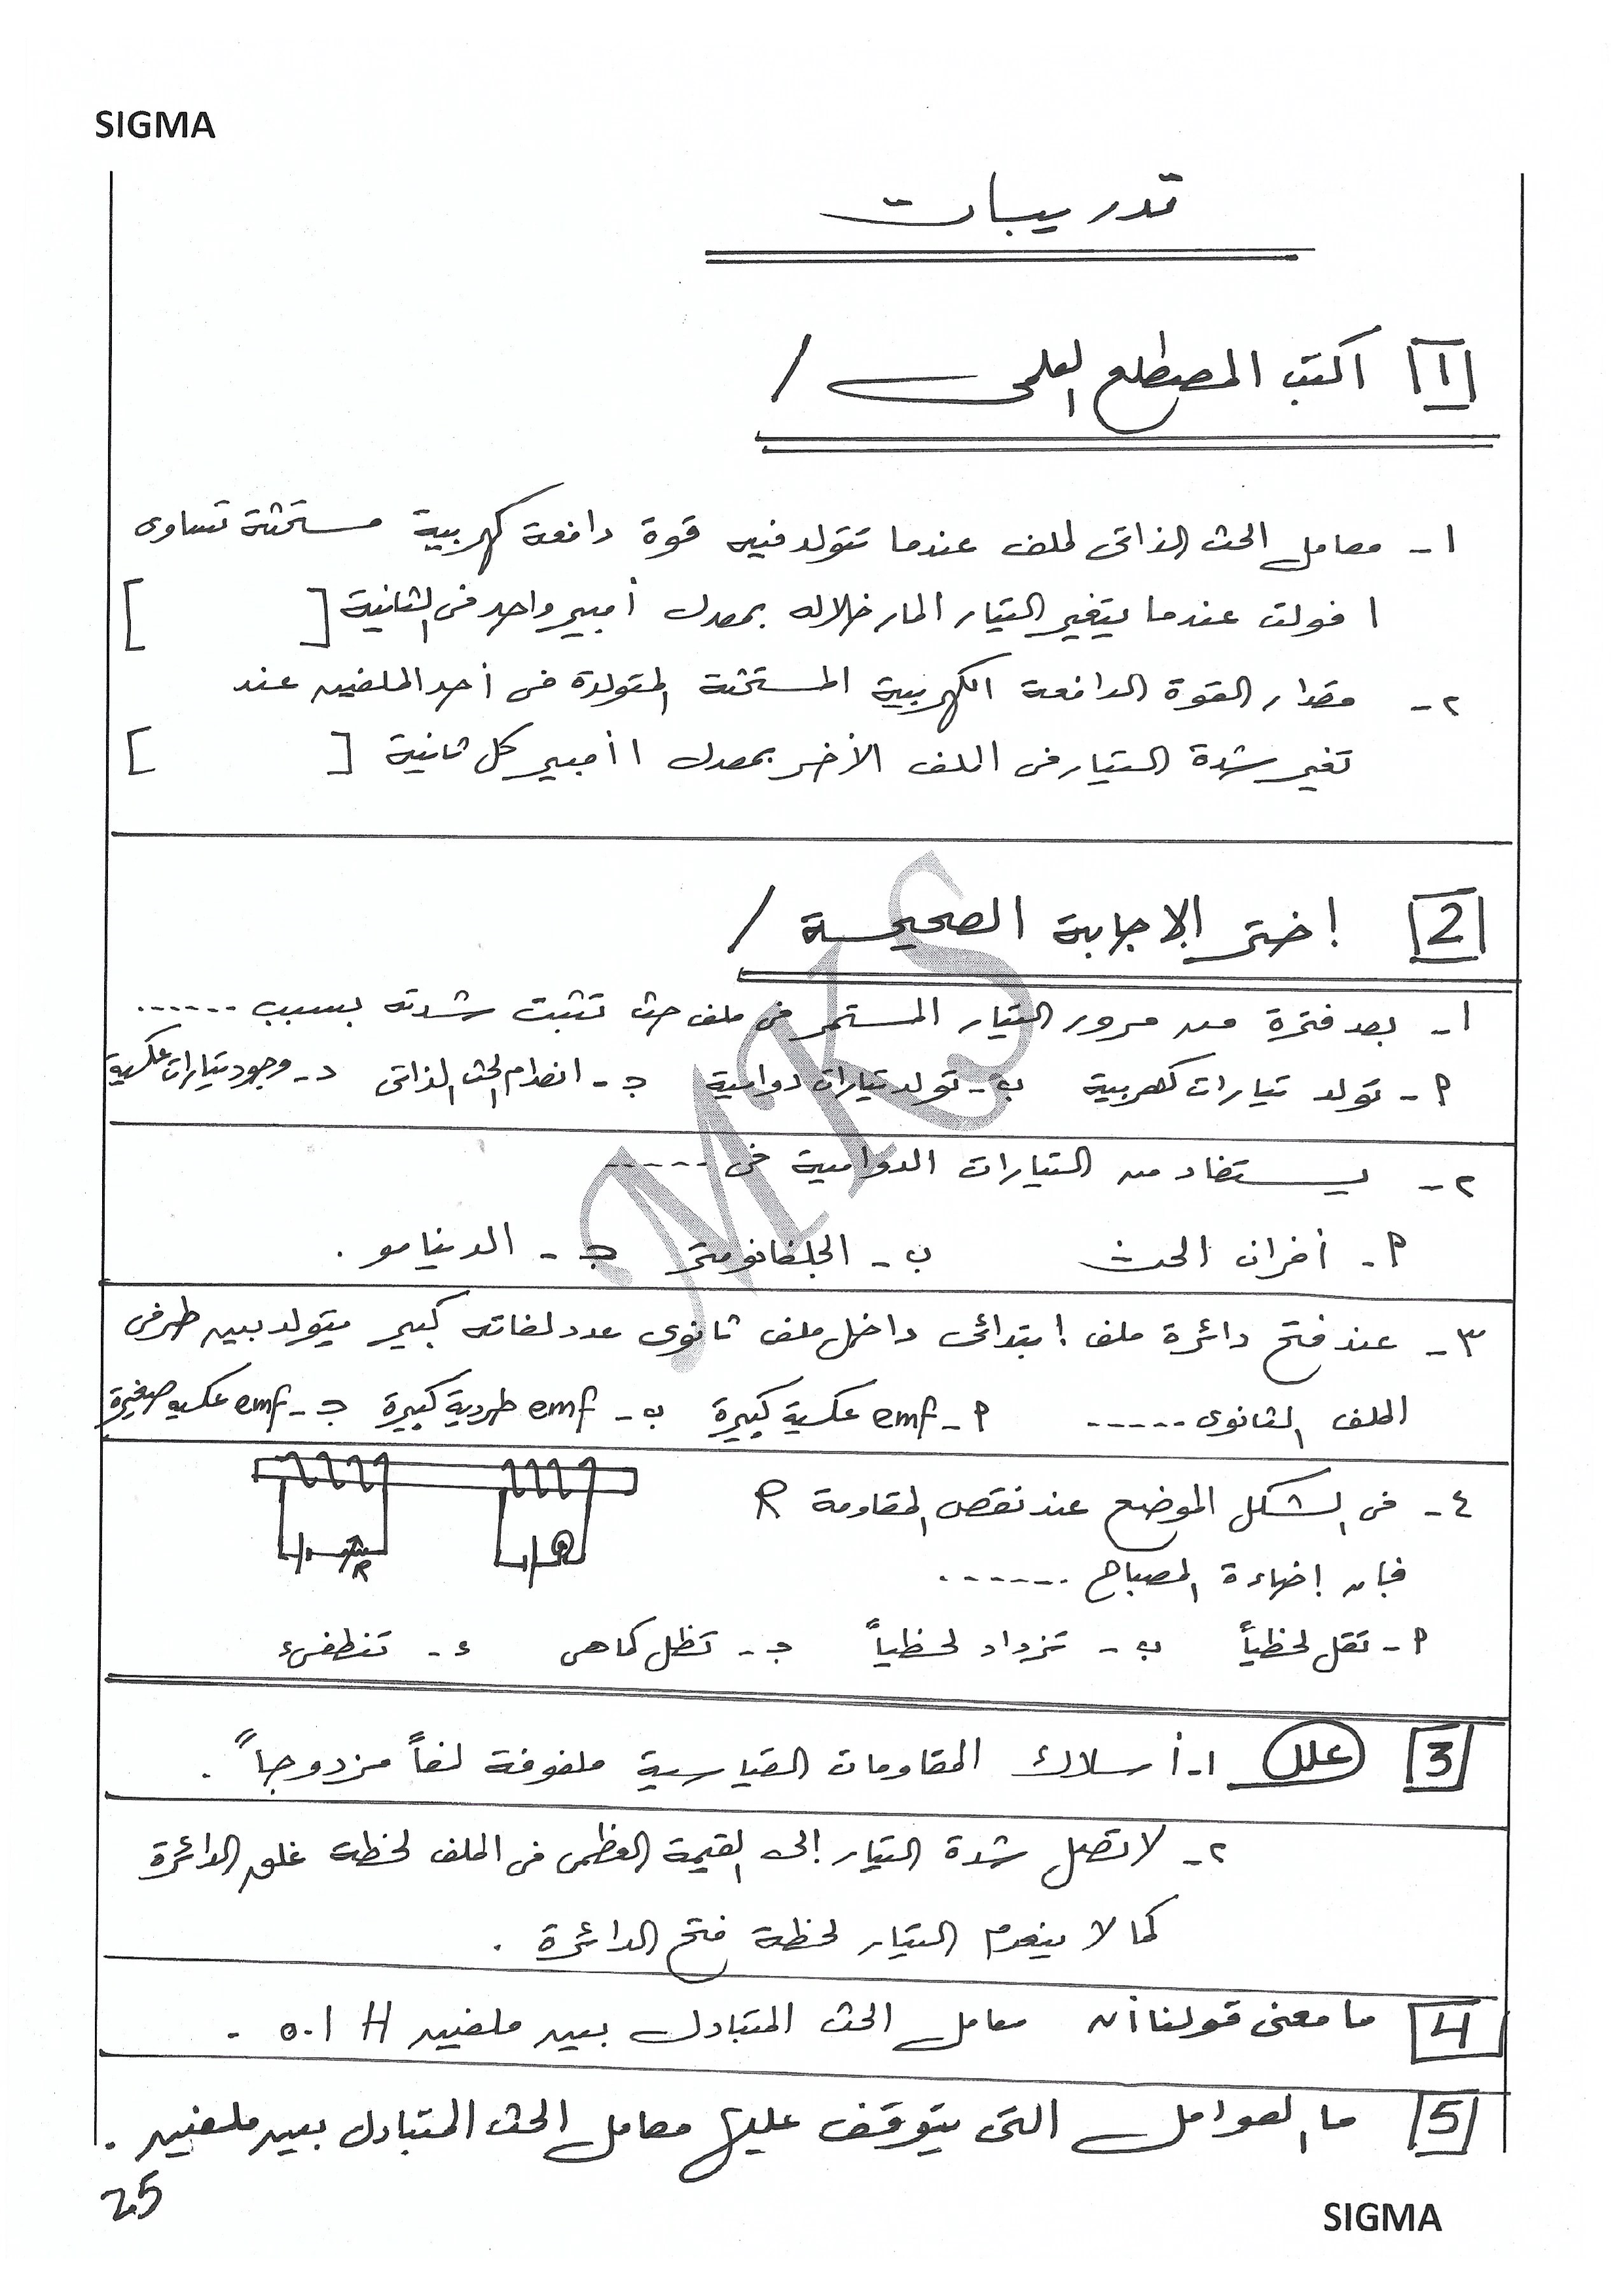 SIGMA
تدريبات
1 اكتب المصطلح العلمى /
١- معامل الحث الذاتى لملف عندما تتولد فيه قوة دافعة كهربية مستحثة تساوى
١ فولت عندما يتغير التيار المار خلاله بمعدل أمبير واحد فى الثانية [ ]
٢- مقدار القوة الدافعة الكهربية المستحثة المتولدة فى أحد الملفين عند
تغير شدة التيار فى الملف الأخر بمعدل ١ أمبير كل ثانية [ ]
2 اختر الإجابة الصحيحة /
١- بعد فترة من مرور التيار المستمر فى ملف حث تثبت شدته بسبب ......
٢- تولد تيارات كهربية ب- تولد تيارات دوامية جـ- انعدام الحث الذاتى د- وجود تيارات عكسية
٢- يستفاد من التيارات الدوامية فى ......
٢- أفران الحث ب- الجلفانومتر جـ- الدينامو .
٣- عند فتح دائرة ملف إبتدائى داخل ملف ثانوى عدد لفاته كبير يتولد بين طرفى
الملف الثانوى ...... ٢- emf عكسية كبيرة ب- emf طردية كبيرة جـ- emf عكسيه صغيرة
٤- فى الشكل الموضح عند نقص المقاومة R
فإن إضاءة المصباح ......
٢- تقل لحظياً ب- تزداد لحظياً جـ- تظل كما هى ء- تنطفىء
R
3 علل ١- أسلاك المقاومات القياسية ملفوفة لفاً مزدوجاً .
٢- لا تصل شدة التيار إلى القيمة العظمى فى الملف لحظة غلق الدائرة
كما لا ينعدم التيار لحظة فتح الدائرة .
4 ما معنى قولنا أن معامل الحث المتبادل بين ملفين 0.1 H .
5 ما العوامل التى يتوقف عليها معامل الحث المتبادل بين ملفين .
25
SIGMA
MKS